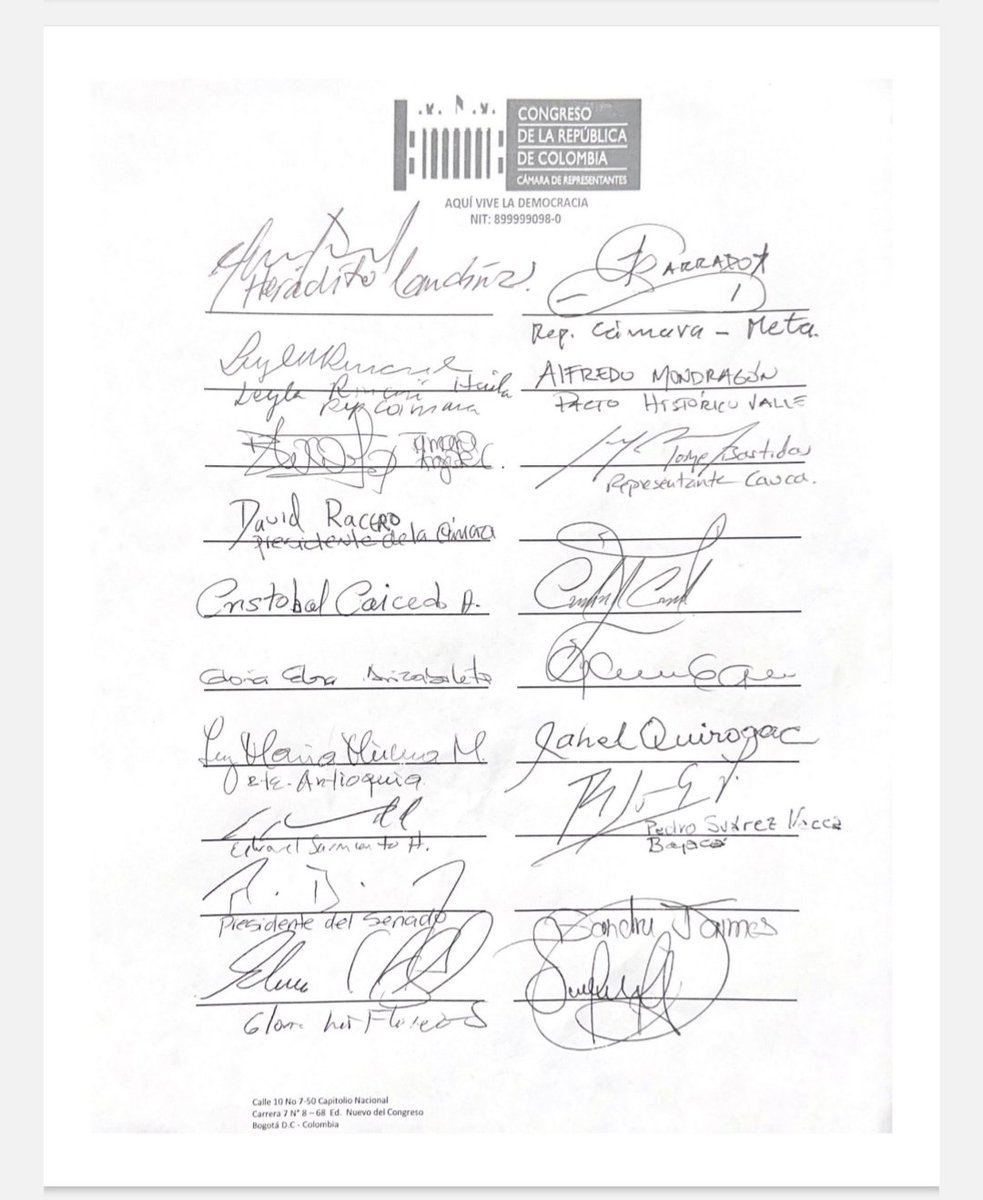 CONGRESO
DE LA REPÚBLICA
DE COLOMBIA
CÁMARA DE REPRESENTANTES
AQUÍ VIVE LA DEMOCRACIA
NIT: 899999098-0
Heráclito Landinez
BARRADO
Rep. Cámara - Meta.
Leyla Rincón Huila
Rep Cámara
ALFREDO MONDRAGÓN
PACTO HISTÓRICO VALLE
Jorge Bastidas
Representante Cauca.
David RACERO
presidente de la Cámara
Cristobal Caicedo A.
Gloria Elena Arizabaleta
Luz Maria Múnera M.
Rte. Antioquia
Jahel Quiroga C
Pedro Suárez Vacca
Boyacá
Eduard Sarmiento H.
Presidente del Senado
Sandra Jaimes
Gloria Inés Flórez S
Calle 10 No 7-50 Capitolio Nacional
Carrera 7 N° 8 – 68 Ed. Nuevo del Congreso
Bogotá D.C - Colombia